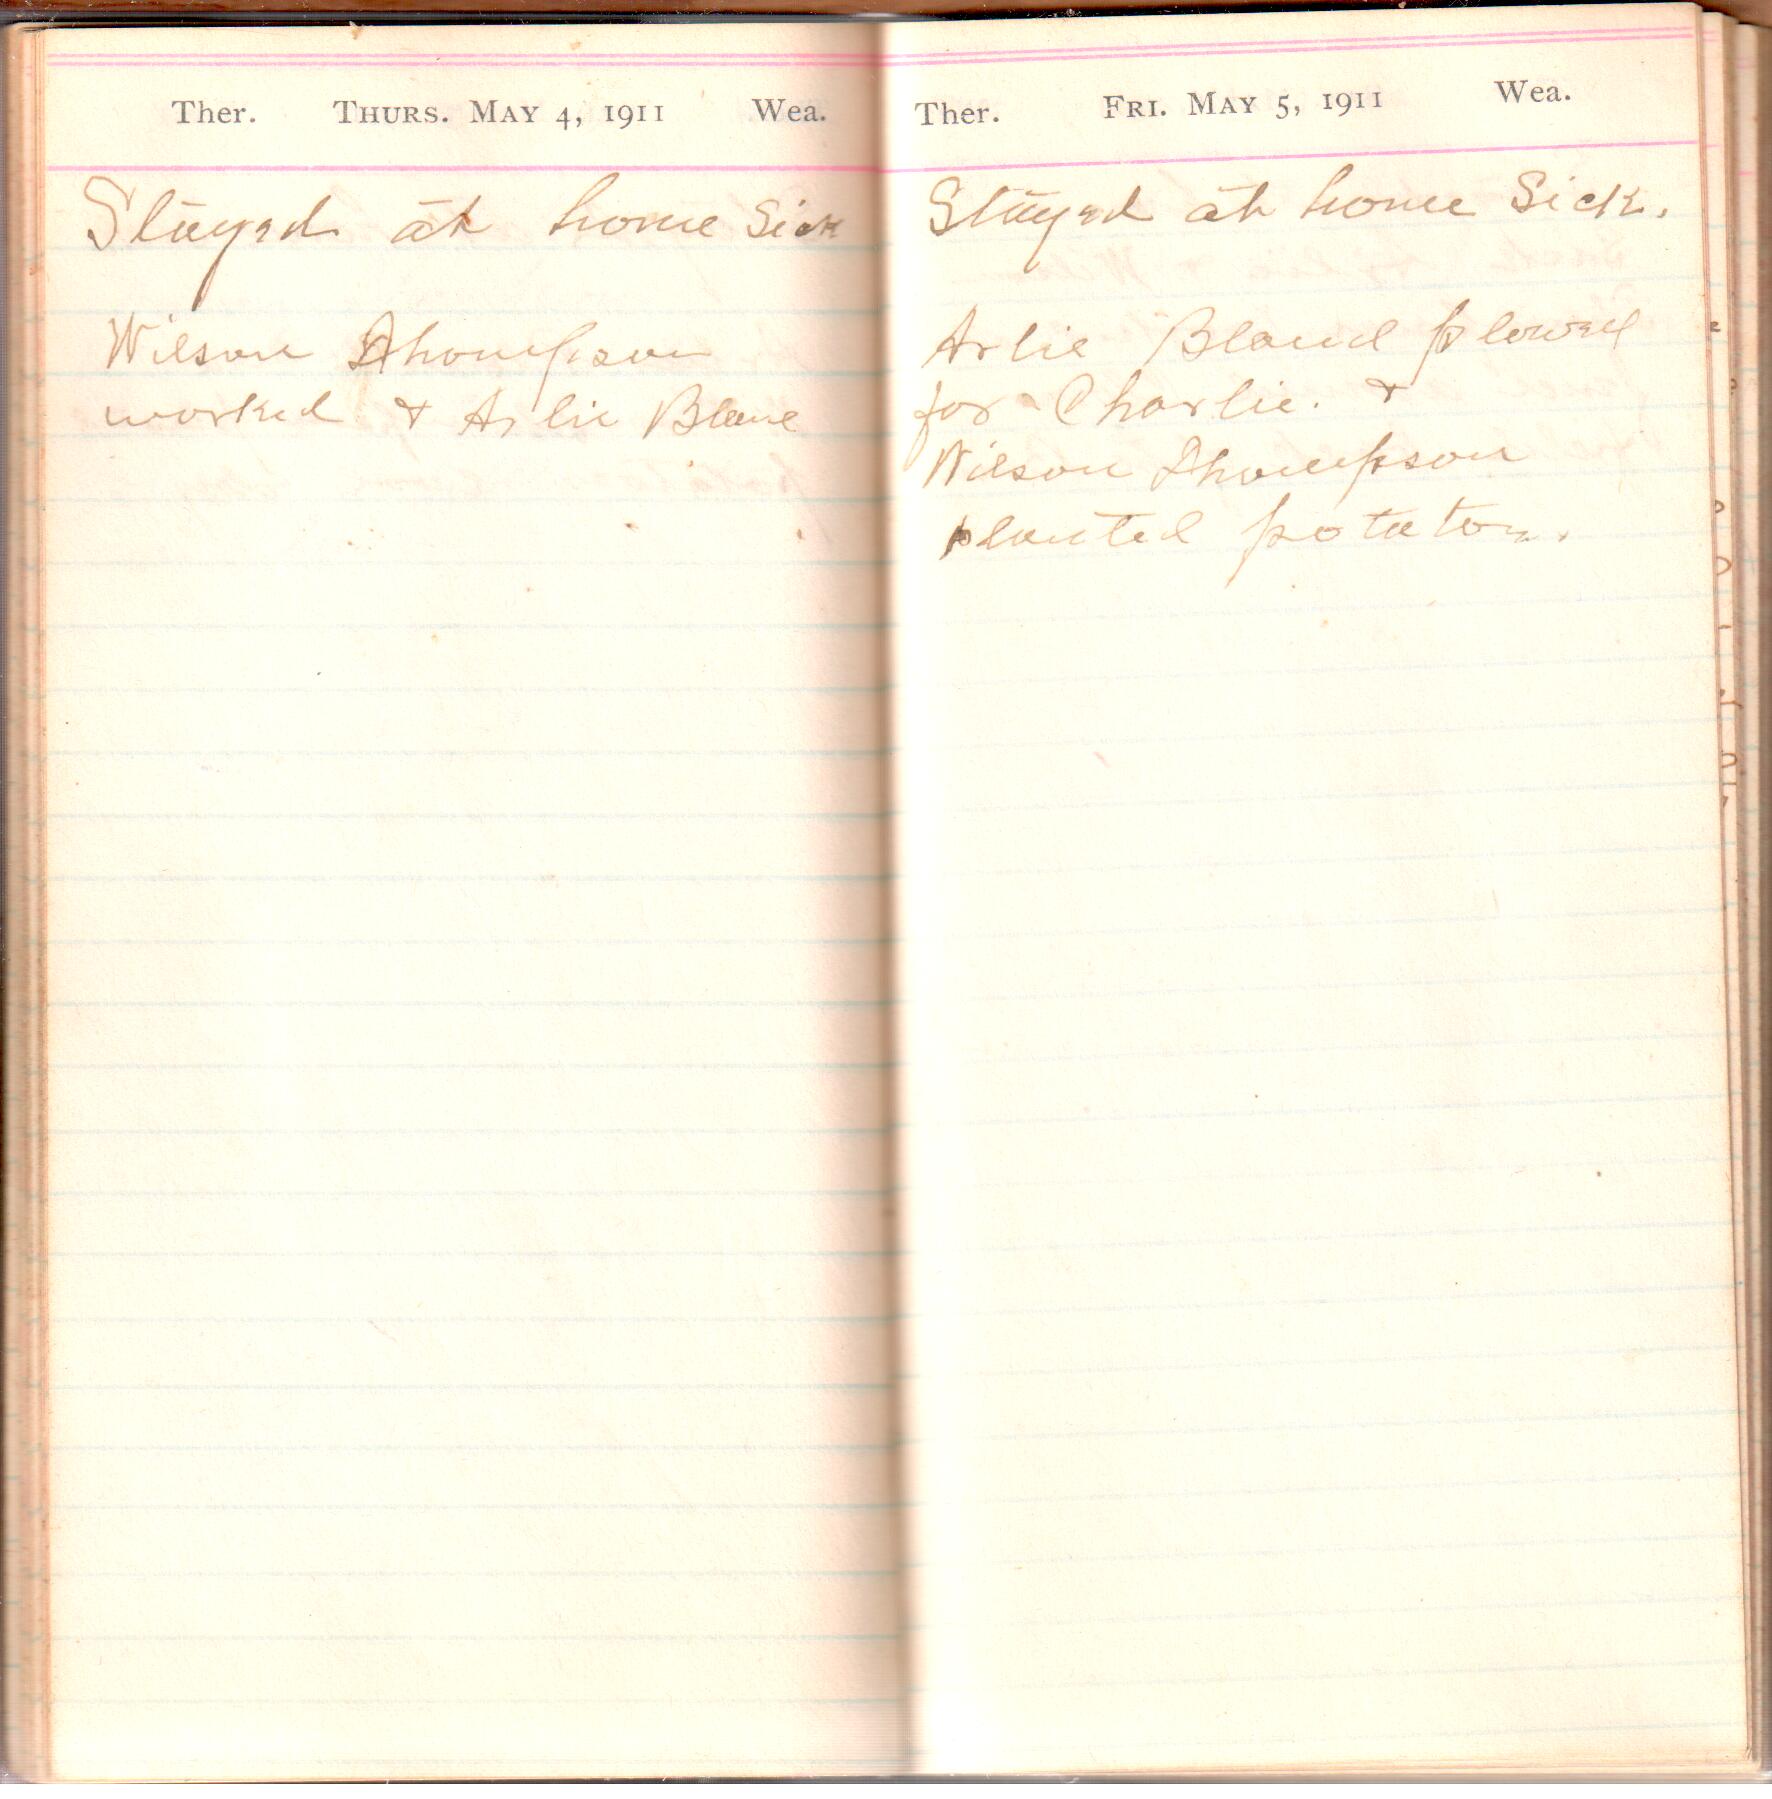 Ther. THURS. MAY 4, 1911 Wea.
Stayed at home Sick
Wilson Thompson
worked & Arlie Blane
Ther. FRI. MAY 5, 1911 Wea.
Stayed at home Sick.
Arlie Bland plowed
for Charlie. &
Wilson Thompson
planted potatoes.